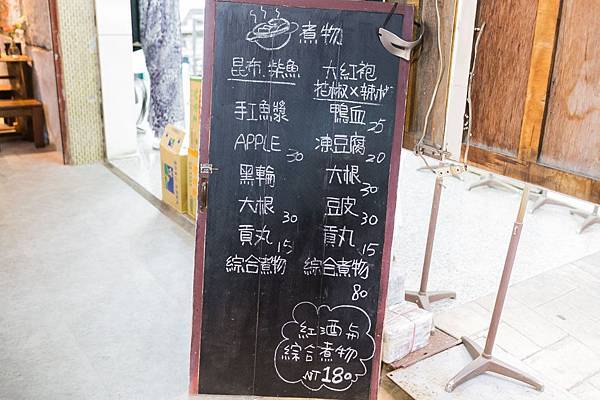 煮物
昆布.柴魚
手工魚漿
APPLE 30
黑輪
大根 30
貢丸 15
綜合煮物
大紅袍
花椒×辣水
鴨血 25
凍豆腐 20
大根 30
豆皮 30
貢丸 15
綜合煮物 80
紅酒与
綜合煮物
NT 180